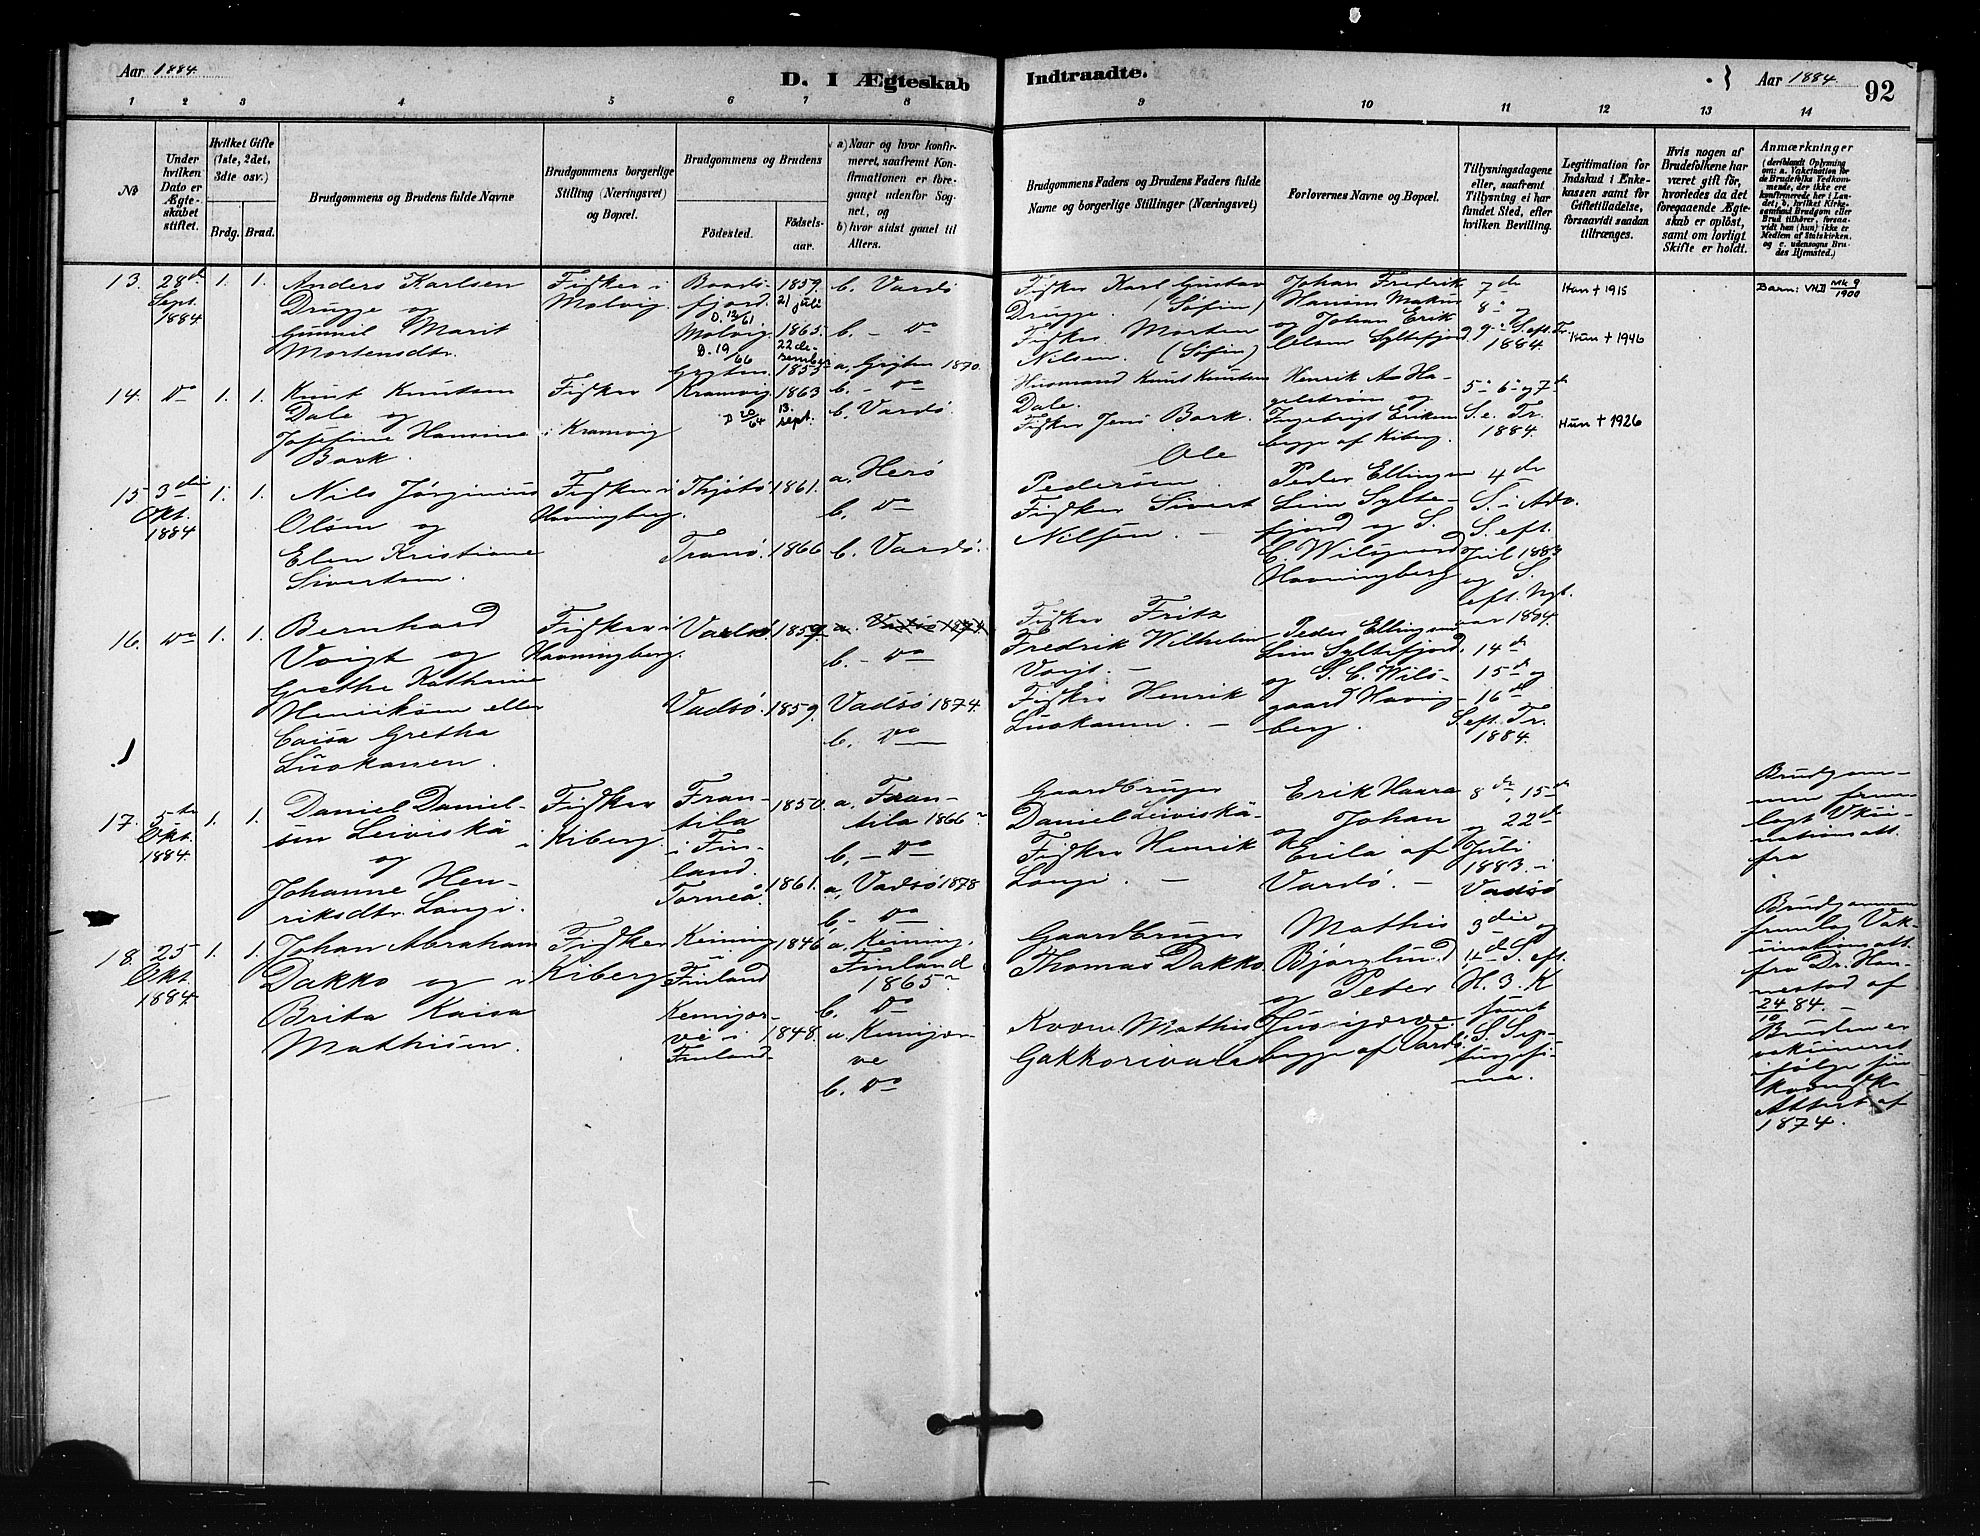 Aar 1884.
D. I Ægteskab
Indtraadte.
Aar 1884.
92
1 2 3 4 5 6 7 8
9 10 11 12 13 14
No
Under hvilken Dato er Ægteskabet stiftet.
Hvilket Gifte (1ste, 2det, 3die osv.)
Brdg. Brud.
Brudgommens og Brudens fulde Navne
Brudgommens borgerlige Stilling (Næringsvei) og Bopæl.
Brudgommens og Brudens
Fødested.
Fødselsaar.
a) Naar og hvor konfirmeret, saafremt Konfirmationen er foregaaet udenfor Sognet, og
b) hvor sidst gaaet til Alters.
Brudgommens Faders og Brudens Faders fulde Navne og borgerlige Stillinger (Næringsvei)
Forlovernes Navne og Bopæl.
Tillysningsdagene eller, saafremt Tillysning ei har fundet Sted, efter hvilken Bevilling.
Legitimation for Indskud i Enkekassen samt for Giftetilladelse, forsaavidt saadan tiltrænges.
Hvis nogen af Brudefolkene har været gift før, hvorledes da det foregaaende Ægteskab er opløst, samt om lovligt Skifte er holdt.
Anmærkninger
(deriblandt Oplysning om: a. Vakcination for de Brudefolks Vedkommende, der ikke ere konfirmerede her i Landet; b. hvilket Kirkesamfund Brudgom eller Brud tilhører, forsaavidt han (hun) ikke er Medlem af Statskirken, og c. udensogns Brudes Hjemsted.)
13. 28de Sept. 1884
1. 1.
Anders Karlsen
Drugge og
Gunnil Marit
Mortensdtr.
Fisker i
Molvig.
Baadsfjord.
D. 13/61
Molvig
D. 19/66
1859.
21 juli
1865.
22 desember
b. Vardø
b. - Do
Fisker Karl Gustav
Drugge. (Søfin)
Fisker Morten
Nilsen. (Søfin)
Johan Fredrik
Hansen Makur
og Johan Erik
Olsen Syltefjord
7de
8de og
9de S. eft. Tr.
1884.
Han + 1915
Hun + 1946
Barn: VHD Mk 9/1900
14. Do
1. 1.
Knut Knutsen
Dale og
Josefine Hansine
Bark.
Fisker
i Kramvig
Gryten
Kramvig
D 20/64
1855
1863
13. sept.
a, Gryten 1870.
b. - Do
b. Vardø.
Husmand Knut Knutsen
Dale.
Fisker Jens Bark.
Henrik A. Hagelstrøm og
Ingebrigt Eriksen
begge af Kiberg.
5te 6te og 7de
S. e. Tr.
1884.
Hun + 1926
15 3die Okt. 1884
1. 1.
Nils Jørginius
Olsen og
Elen Kristiane
Sivertsen.
Fisker i
Havningberg.
Thjøtø
Tranø.
1861.
1866
a, Herø
b. Do
b. Vardø.
Ole
Pedersøn.
Fisker Sivert
Nilsen. -
Peder Ellingsen
Lim Syltefjord og S.
C. Wilsgaard
Havningberg
4de
S. i Adv.
S. eft.
Jul 1883
og S.
eft. Nyt-
aar 1884.
16. Do
1. 1.
Bernhard
Voigt og
Grethe Kathrine
Henriksen eller
Caisa Gretha
Luokanen.
Fisker i
Havningberg.
Vadsø
Vadsø.
1859
1859.
a. Vadsø 1874.
b. - Do
Vadsø 1874.
b. Do
Fisker Fritz
Fredrik Wilhelm
Voigt. -
Fisker Henrik
Luokanen. -
Peder Ellingsen
Lim Syltefjord,
og S. C. Wilsgaard Havningberg.
14de
15de og
16de
S. eft. Tr.
1884.
17. 5te Okt. 1884
1. 1.
Daniel Danielsen Leiviskä
og
Johanne Henriksdtr. Langi.
Fisker
i Kiberg.
Frantila
i Finland.
Torneå.
1850.
1861.
a, Frantila 1866
b. - Do
a, Vadsø 1878
b. - Do
Gaardbruger
Daniel Leiviskä-
Fisker Henrik
Langi. -
Erik Haara
og Johan
Erila af
Vardø. -
8de, 15de
og 22de
Juli
1883. i
Vadsø
Brudgommen fremlagt Vkcinationsatt.
fra
18. 25 Okt. 1884
1. 1.
Johan Abraham
Dakko og
Brita Kaisa
Mathisen.
Fisker
i Kiberg
Keining
i
Finland
Kemijærvi i
Finland
1846
1848.
a. Keining,
Finland
1865
b. Do
a. Kemijærve
b. Do
Gaardbruger
Thomas Dakko
Kvæn Mathis
Gakkorivala
Mathis
Bjørglund
og Peter
Jusijærve
begge af Vardø.
3die og
4de S. eft.
H. 3. K
samt
S. Septuagesima.
Brudgommen
fremlag. Vakcinationsatt.
fra Dr. Hannestad af
24/10 84. -
Bruden er
vakcineret
ifølge fin
Attest af
1874.